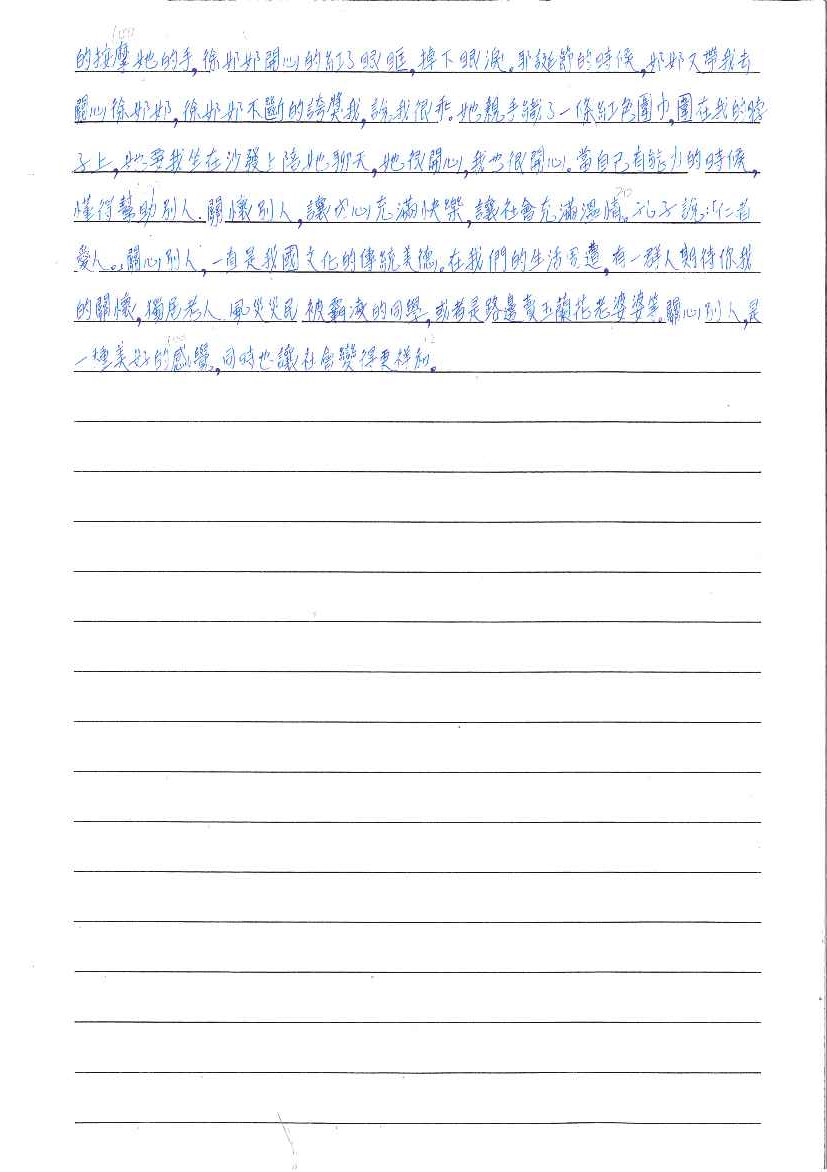 的按摩她的手,徐奶奶開心的紅了眼眶,掉下眼淚。耶誕節的時候,奶奶又帶我去
關心徐奶奶,徐奶奶不斷的誇獎我,說我很乖。她親手織了一條紅色圍巾,圍在我的脖
子上,她要我坐在沙發上陪她聊天,她很開心,我也很開心。當自己有能力的時候,
懂得幫助別人、關懷別人,讓內心充滿快樂,讓社會充滿溫情。孔子說:「仁者
愛人。」關心別人,一直是我國文化的傳統美德。在我們的生活周遭,有一群人期待你我
的關懷,獨居老人、風災災民、被霸凌的同學,或者是路邊賣玉蘭花老婆婆等。關心別人,是
一種美好的感覺,同時也讓社會變得更祥和。